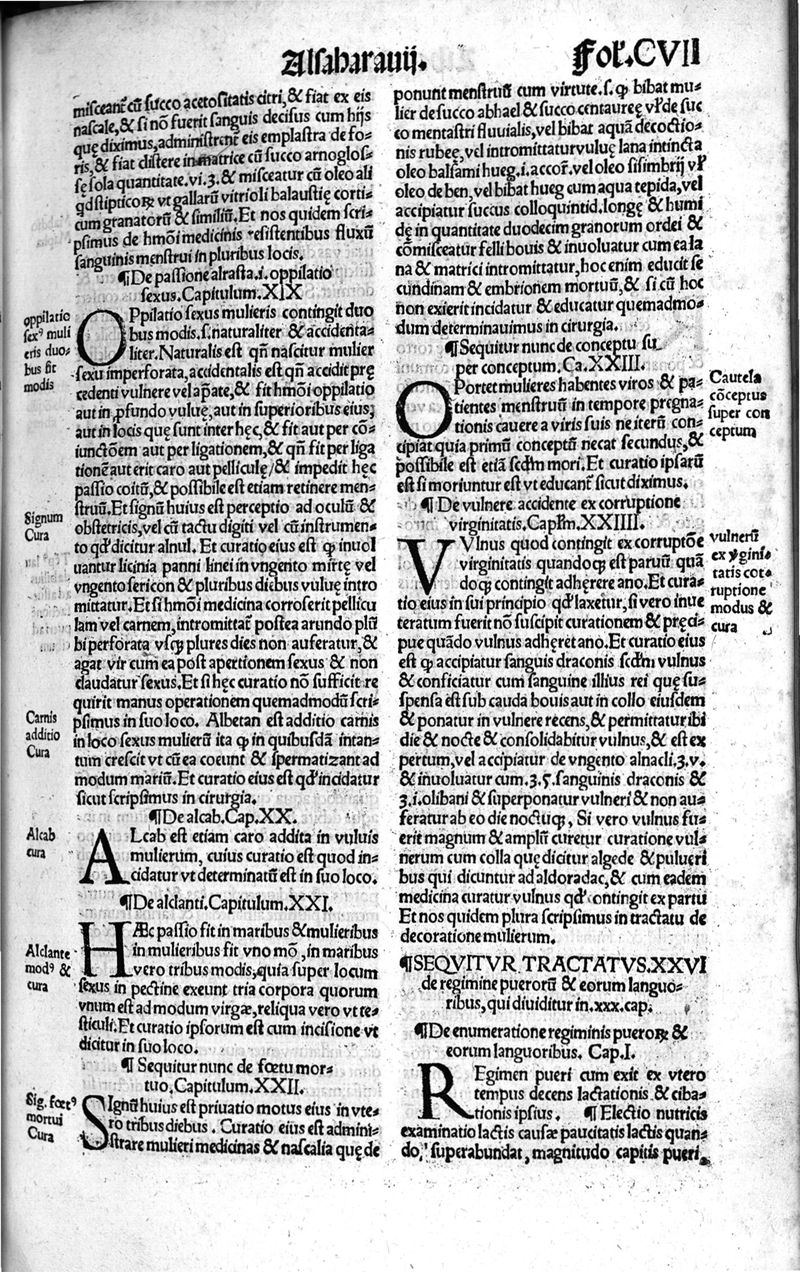 Alsaharauij.
Fol.CVII
misceant᷑ cū succo acetositatis citri,& fiat ex eis
nascale,& si nō fuerit sanguis decisus cum hijs
quę diximus,administrent᷑ eis emplastra de fo-
ris,& fiat clistere in matrice cū succo arnoglos-
sę sola quantitate.vi.ʒ.& misceatur cū oleo ali
qd stipticoꝝ vt gallarū vitrioli balaustię corti-
cum granatorū & similiū.Et nos quidem scri-
psimus de hmōi medicinis resistentibus fluxū
sanguinis menstrui in pluribus locis.
¶De passione alrasta.i.oppilatio
sexus.Capitulum.XIX
oppilatio
sexꝰ muli
eris duo-
bus fit
modis
OPpilatio sexus mulieris contingit duo
bus modis.s.naturaliter & accidenta-
liter.Naturalis est qn̄ nascitur mulier
sexu imperforata,accidentalis est qn̄ accidit prę
cedenti vulnere vel apāte,& fit hmōi oppilatio
aut in ꝓfundo vuluę,aut in superioribus eius;
aut in locis quę sunt inter hęc,& fit aut per cō-
iunctōem aut per ligationem,& qn̄ fit per liga
tionē aut erit caro aut pelliculę/& impedit hęc
passio coitū,& possibile est etiam retinere men-
struū.Et signū huius est perceptio ad oculū &
Signum
Cura
obstetricis,vel cū tactu digiti vel cū instrumen-
to qđ dicitur alnul. Et curatio eius est ꝙ inuol
uantur licinia panni linei in vngento mirtę vel
vngento sericon & pluribus diebus vuluę intro
mittatur.Et si hmōi medicina corroserit pellicu
lam vel carnem,intromittat᷑ postea arundo plū
bi perforata vsq̃ plures dies non auferatur,&
agat vir cum ea post apertionem sexus & non
claudatur sexus.Et si hęc curatio nō sufficit re
quirit manus operationem quemadmodū scri-
psimus in suo loco. Albetan est additio carnis
Carnis
additio
Cura
in loco sexus mulierū ita ꝙ in quibusdā intan-
tum crescit vt cū ea coeunt & spermatizant ad
modum mariū.Et curatio eius est qđ incidatur
sicut scripsimus in cirurgia.
¶De alcab.Cap.XX.
Alcab
cura
ALcab est etiam caro addita in vuluis
mulierum, cuius curatio est quod in-
cidatur vt determinatū est in suo loco.
¶De alclanti.Capitulum.XXI.
HÆc passio fit in maribus & mulieribus
in mulieribus fit vno mō ,in maribus
Alclante
modꝰ &
cura
vero tribus modis,quia super locum
sexus in pectine exeunt tria corpora quorum
vnum est ad modum virgæ,reliqua vero vt te-
sticuli.Et curatio ipsorum est cum incisione vt
dicitur in suo loco.
¶ Sequitur nunc de fœtu mor-
tuo.Capitulum.XXII.
Sig.fœtꝰ
mortui
Cura
SIgnū huius est priuatio motus eius in vte-
ro tribus diebus . Curatio eius est admini-
strare mulieri medicinas & nascalia quę de
ponunt menstruū cum virtute.s.ꝙ bibat mu-
lier de succo abhael & succo centaureę vl̄ de suc
co mentastri fluuialis,vel bibat aquā decoctio-
nis rubeę,vel intromittatur vuluę lana intincta
oleo balsami hueg.i.accor̄.vel oleo sisimbrij vl̄
oleo de ben, vel bibat hueg cum aqua tepida,vel
accipiatur succus colloquintid.longę & humi
dę in quantitate duodecim granorum ordei &
cōmisceatur felli bouis & inuoluatur cum ea la
na & matrici intromittatur, hoc enim educit se
cundinam & embrionem mortuū,& si cū hoc
non exierit incidatur & educatur quemadmo-
dum determinauimus in cirurgia.
¶Sequitur nunc de conceptu su
per conceptum.Ca.XXIII.
Cautela
cōceptus
super con
ceptum
OPortet mulieres habentes viros & pa-
tientes menstruū in tempore pregna-
tionis cauere a viris suis ne iterū con-
cipiat quia primū conceptū necat secundus,&
possibile est etiā scđm mori.Et curatio ipsarū
est si moriuntur est vt educant᷑ sicut diximus.
¶ De vulnere accidente ex corruptione
virginitatis.Capl̄m.XXIIII.
vulnerū
ex ṽgini-
tatis cor-
ruptione
modus &
cura
VVlnus quod contingit ex corruptōe
virginitatis quandoqȝ est paruū quā
doqȝ contingit adhęrere ano.Et cura-
tio eius in sui principio qđ laxetur,si vero inue
teratum fuerit nō suscipit curationem & pręci-
pue quādo vulnus adhęret ano.Et curatio eius
est ꝙ accipiatur sanguis draconis scđm vulnus
& conficiatur cum sanguine illius rei quę su-
spensa est sub cauda bouis aut in collo eiusdem
& ponatur in vulnere recens,& permittatur ibi
die & nocte & consolidabitur vulnus,& est ex
pertum,vel accipiatur de vngento alnacli.ʒ.v.
& inuoluatur cum.ʒ.ʒ.sanguinis draconis &
ʒ.i.olibani & superponatur vulneri & non au-
feratur ab eo die noctuqȝ, Si vero vulnus fu-
erit magnum & amplū curetur curatione vul-
nerum cum colla quę dicitur algede & pulueri
bus qui dicuntur ad aldoradac,& cum eadem
medicina curatur vulnus qđ contingit ex partu
Et nos quidem plura scripsimus in tractatu de
decoratione mulierum.
¶SEQVITVR TRACTATVS.XXVI
de regimine puerorū & eorum languo-
ribus, qui diuiditur in.xxx.cap.
¶De enumeratione regiminis pueroꝝ &
eorum languoribus. Cap.I.
REgimen pueri cum exit ex vtero
tempus decens lactationis & ciba-
tionis ipsius. ¶ Electio nutricis
examinatio lactis causæ paucitatis lactis quan-
do, superabundat, magnitudo capitis pueri,